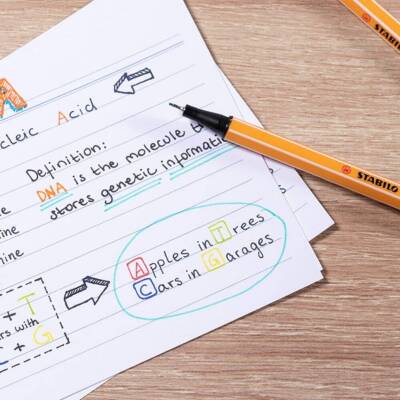 A
cleic Acid
Definition:
DNA is the molecule th
stores genetic informati
ne
ine
mine
Apples in Trees
Cars in Garages
+ T
rs with
+ G
STABILO
STABILO